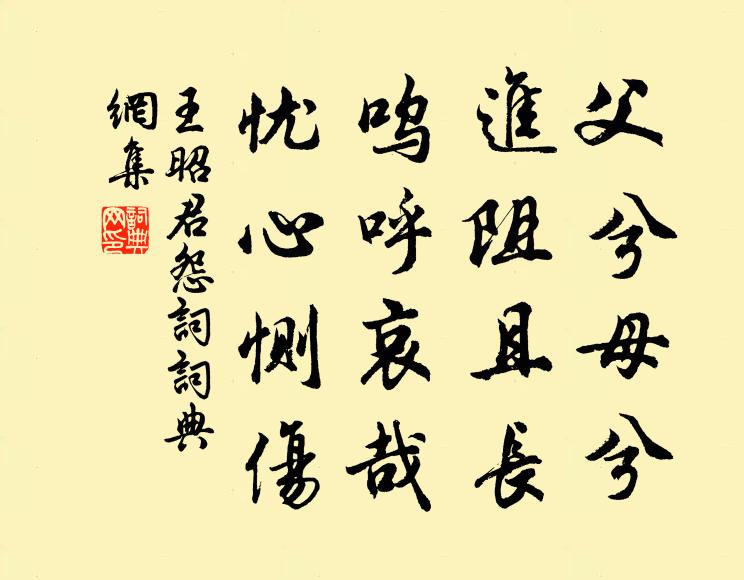 父兮母兮
進阻且長
嗚呼哀哉
忧心惻傷
王昭君怨詞詞典
網集
詞典网印